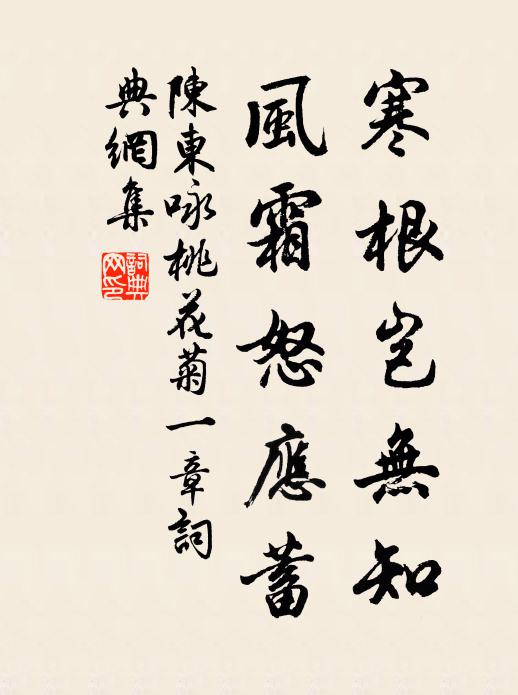 寒根岂無知
風霜怒應蓄
陳東咏桃花菊一章詞
典網集
詞典网印